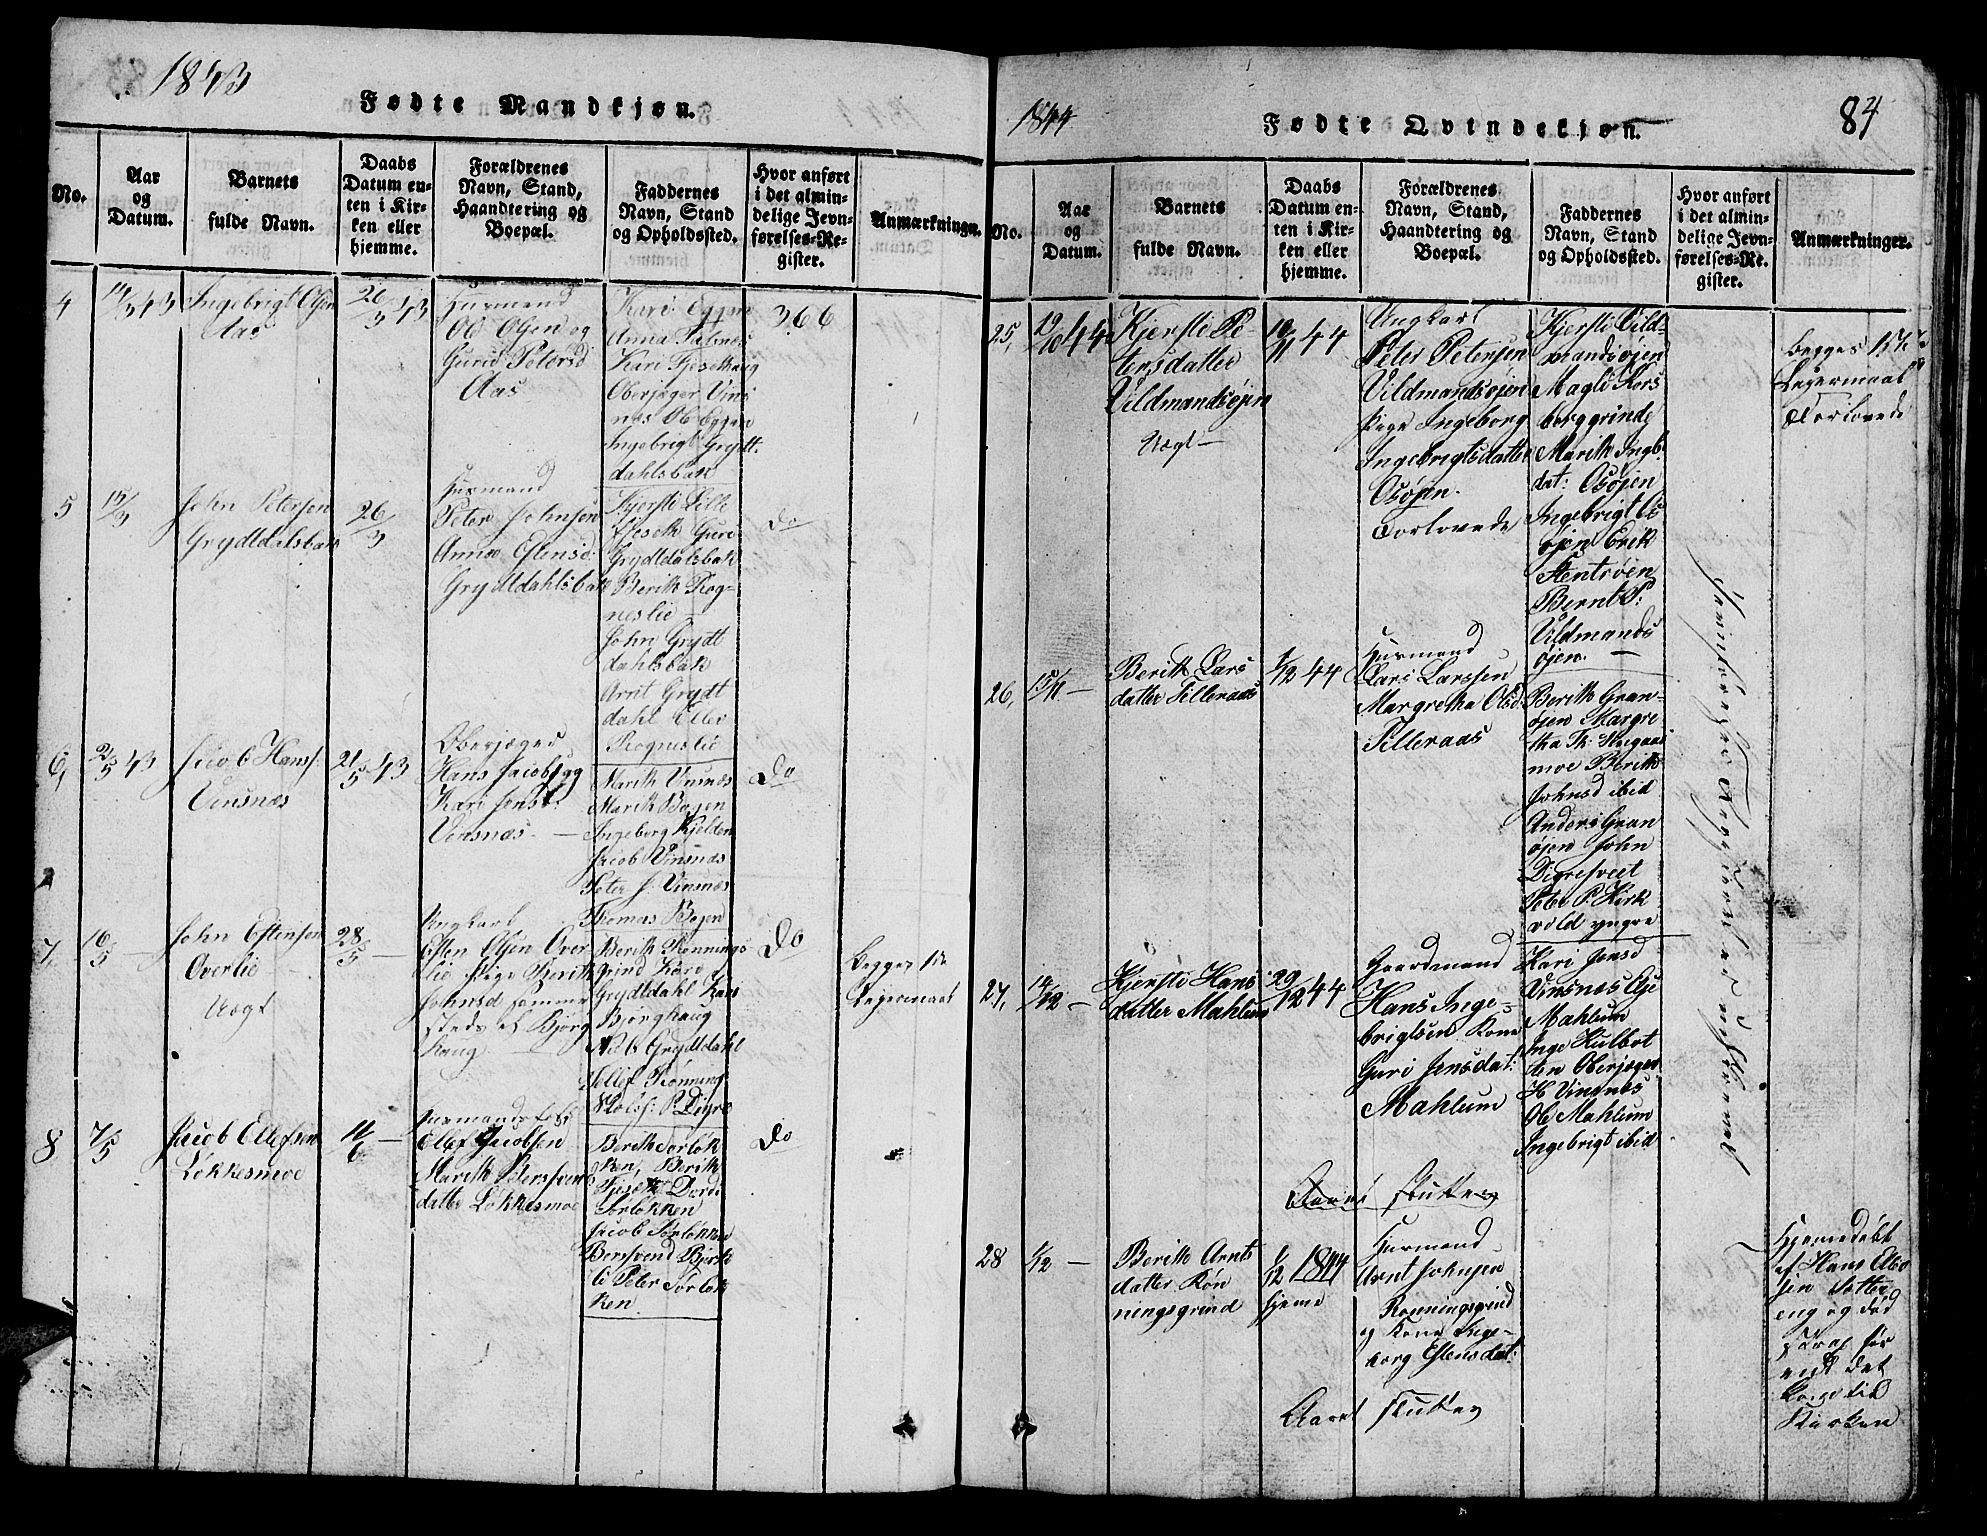 1843
Fødte Mandkjøn.
No.
Aar
og
Datum.
Barnets
fulde Navn.
Daabs
Datum en-
ten i Kir-
ken eller
hjemme.
Forældrenes
Navn, Stand,
Haandtering og
Boepæl.
Faddernes
Navn, Stand
og Opholdssted.
Hvor anført
i det almin-
delige Jevn-
førelses-Re-
gister.
Anmærkninger.
4
43
Ingebrigt Olsen
Aas
26/3 43
Husmand
Ole Olsen og
Guru Petersd
Aas
Kari Eggen
Anna
Kari Fjeseth
Oberjæger Vins
nes Ole Eggen
Ingebrigt Grydt
dahlsbak
366
5
15/3
John Petersen
Grydtdalsbak
26/3
Husmand
Peter Johnsen
Anne Estensd:
Grydtdahlsbak
Kjersti Lille
fjeseth Guri
Grydtdalsbak
Berith Rog-
neslie
John Grydt
dahlsbak
Arnt Grydt
dahl Ellev
Rogneslie
Do
6,
2/5 43
Jacob Hanss:
Vinsnæs
21/5 43
Oberjæger
Hans Jacobs og
Kari Jensd:
Vinsnæs.
Marith Vinsnæs
Marith Bogen
Ingeborg Kjelden
Jacob Vinsnæs
Peter J: Vinsnæs
Thomas Bogen
Do
7,
16/5 —
John Estensen
Overlie
Uægt
28/5 —
Ungkarl
Esten Olsen Over
lie Pige Berith
Johnsd samme
steds el Bjørg
haug
Berith Rønnings
grind Kari
Grydtdahl Kari
Bjørghaug
Nils Grydtdahl
Tollef Rønning
P. Digre
Do
Begges 1ste
Leiermaal
8
7/5
Jacob Ellefsen
Løkkesmoe
11/6 —
Husmands
Ellef Jacobsen
Marith Bersvens
datter Løkkesmoe
Berith Sørløk
ken, Berith
Fjeseth Dordi
Sørløkken
Jacob Sørløkken
Bersvend Bjerk
li Peter Sørløk
ken
Do
1844
Fødte Qvindekjøn.
84
No.
Aar
og
Datum.
Barnets
fulde Navn.
Daabs
Datum en-
ten i Kir-
ken eller
hjemme.
Forældrenes
Navn, Stand,
Haandtering og
Boepæl.
Faddernes
Navn, Stand
og Opholdssted.
Hvor anført
i det almin-
delige Jevn-
førelses-Re-
gister.
Anmærkninger.
25,
19/10 44
Kjersti Pe
tersdatter
Vildmandsøjen
Uægt —
10/11 44
Ungkarl
Peter Petersen
Vildmandsøjen
Pige Ingeborg
Ingebrigtsdatter
Osøjen.
Forlovede
Kjersti Vild-
mandsøjen
Magli Kors
berggrinde
Marith Ingb
dat: Osøjen
Ingebrigt Os
øjen Erik
Stentrøen
Bernt P:
Vildmands
øjen. —
Begges 1ste
Leiermaal
Forlovede
26,
15/11 —
Berith Lars
datter Tilleraas
1/12 44
Husmand
Lars Larssen
Margretha Olsd
Tilleraas
Berith Gran-
øjen Margre
tha Th:
moe Berith
Johnsd ibid
Anders Gran
øjen John
Digresveet
Peter P. Kirk
vold yngre
27,
14/12 —
Kjersti Hans
datter Mahlum
29/12 44
Gaardmand
Hans Inge-
brigtsen Kone
Guri Jensdat:
Mahlum
Kari Jensd
Vinsnæs
Mahlum
Inge Kulbot
ten Oberjæger
H Vinsnæs
Ole Mahlum
Ingebrigt ibid
Aaret sluttes
28
1/12 —
Berith Arnts
datter Røn
ningsgrind
1/12 1844
hjeme
Husmand
Arnt Johnsen
Rønningsgrind
og Kone Inge-
borg Estensdat:
Hjemedøbt
af Hans
og død
før
det
kom til
Kirken
Aaret sluttes